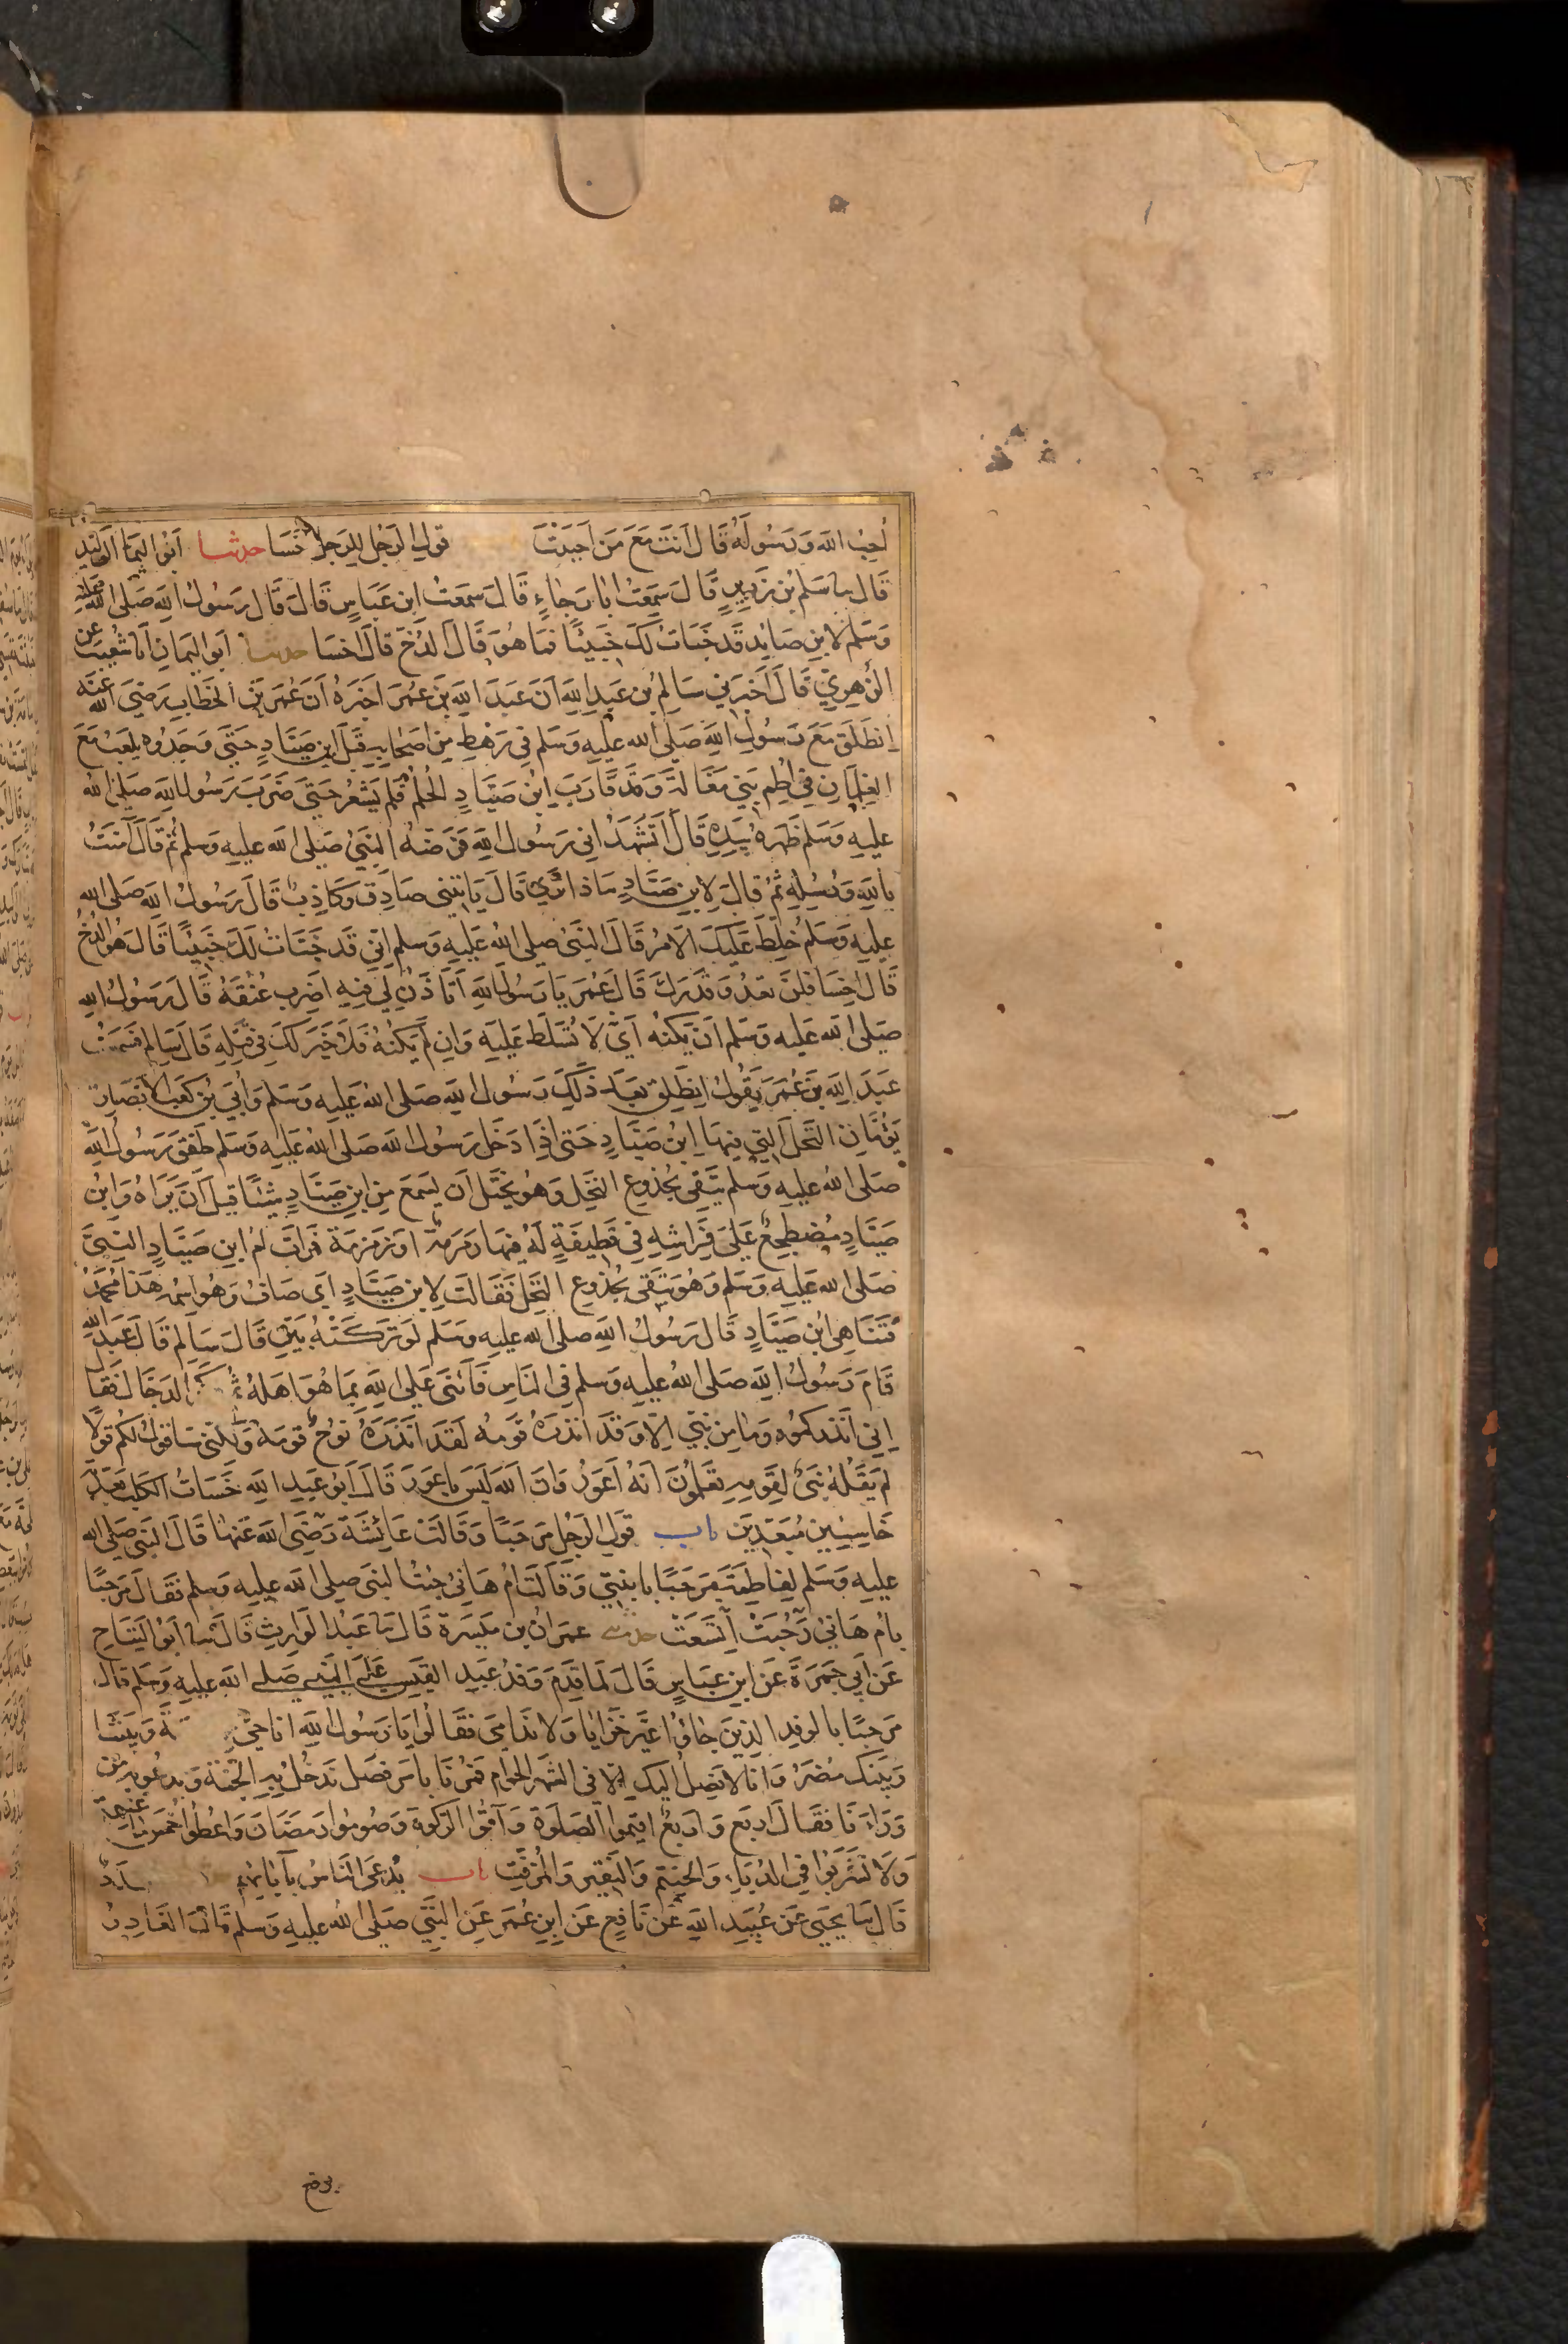 اُحِبُ الله وَرَسُولَهُ قَالَ اَنتَ مَعَ مَن اَحبَبْتَ قول الرَجُل لِلرَجل اخسَا حدثنا اَبُو الوَلِيد
قَالَ سَا سَلم بُن زَرِيرٍ قَالَ سَمِعَتُ ابَا رَجَاءٍ قَالَ سَمعَتُ ابن عَبَاسٍ قَالَ قَالَ رَسُولُ الله صَلى الله عليه
وَسَلم لابنِ صَايد قَد خَبَات لَكَ خَبِيئًا فمَا هُوَ قَالَ الدُخّ قالَ اخسَا حدثنا اَبو اليَمانِ اَنَا شعَيبٌ عن
الزُهرِيّ قَالَ اَخبَرَني سَالِمُ بُن عَبدِ اللهِ اَنَ عَبدَ اللهِ بَن عمَرَ اَخبَرَهُ اَنَ عُمَرَ بَن الخَطابِ رَضيَ الله عنه
اِنطَلَقَ مَعَ رَسُولِ اللهِ صَلى الله عليهِ وَسَلم فِي رَهطٍ مِن اَصحَابهِ قِبَلَ ابنِ صَيَّادٍ حَتّى وَجَدُوه يلعَبُ مَعَ
الغِلمانِ فِي اُطُم بَني مَغَالَة وَقَد قَارَبَ ابن صَيَّادٍ الحُلُمَ فَلم يَشعُر حَتى ضَرَبَ رَسُول الله صَلى الله
عليهِ وَسَلم ظَهرَهُ بِيَدِهِ قَالَ اَتَشهَدُ انى رَسُول اللهِ فَرَضّهُ النَبيّ صَلى الله عليهِ وسَلم ثم قَالَ آمَنتُ
بِاللهِ وَرُسُلِهِ ثمُ قالَ لِابنِ صَيَّادٍ مَاذا ترَي قَالَ يَاتيني صَادِق وَكَاذِبٌ قَالَ رَسُولُ اللهِ صَلى الله
عليهِ وَسَلم خُلِطَ عَلَيكَ الاَمرُ قَالَ النَبيُ صلى الله عَليهِ وَسلم اِنّي قَد خَبَاتُ لَكَ خَبِيئًا قَالَ هُوَ الدُخُّ
قَالَ اخسَا فَلَنَ تعدُوَ قَدرَكَ قَالَ عُمَر يَا رَسُولَ اللهِ اَتَاذَنُ لِي فيِهِ اَضرِب عُنُقَهُ قَالَ رَسُولُ اللهِ
صَلى الله عَليه وَسَلم اَن يَكُنهُ اَيَّ لَا تُسَلَّط عَليَهِ وَاِن لَم يَكُنهُ فَلا خَيرَ لَكَ فِي قَتلِهِ قَالَ سَالِم فَسَمِعتُ
عَبدَ اللهِ بَن عُمَر يَقُولُ انطَلق بَعدَ ذَلِكَ رَسُولُ اللهِ صَلى اللهُ عَليهِ وَسَلم وَاُبَيّ بُن كعَب الاَنصَارِي
يَؤُمّانِ النَخلَ التي فيهَا ابن صَيَّادٍ حَتى اذَا دَخَل رَسُول الله صَلى اللهُ عَليهِ وَسَلم طَفِقَ رَسُولُ الله
صَلى الله عليهِ وَسَلم يَتَقِى بجُذوعِ النَخلِ وَهُو يَختَل اَن يسَمع مِن ابنِ صَيَّادٍ شَيئًا قبلَ اَن يَرَاهُ وَابُن
صَيَّادٍ مُضطجِعٌ عَلىَ فِراشِهِ فِى قَطِيفَةٍ لَهُ فيهَا رَمرَمَة اوَ زَمزَمَة فَرَات اُم ابنِ صَيَّادٍ النَبيَّ
صَلى الله عَليهِ وَسَلم وَهُو يَتَقى بجُذوعِ النَخل فَقَالَت لِابن صَيَّادٍ اَى صَاف وَهُو اسمُه هَذا مُحمَّدُ
فتَنَاهى ابُن صَيَّادٍ قَال رَسُولُ اللهِ صلى الله عليه وَسلم لَو تَرَكَتْهُ بَيّن قَالَ سَالِم قَال عَبدُ الله
قَامَ رَسُولُ اللهِ صَلى اللهُ عليهِ وَسلم في الناسِ فَاَثنَى عَلى اللهِ بمَا هُوَ اَهلهُ ثُمّ الدَجَال فَقَا
اِنِي اُنذِركمُوه وَمَا مِن نَبيّ اِلّا وَقَد اَنذَرَهُ قَومَه لَقَد اَنذَرَهُ نوُحٌ قومَهُ وَلَكِنّي سَاقوُلُ لكُم قولًا
لَم يَقُلهُ نَبيٌّ لِقَومِهِ تَعلَمُونَ اَنهُ اَعوَرُ وَاَنَ الله لَيَس بِاعوَرَ قَالَ اَبو عَبدِ اللهِ خَسَاتُ الكَلبَ بَعّدتُ
خَاسِئِين مُبعَدِين باب قَول الرَجُل مَرحبًا وَقَالَت عَائِشَة رَضيَ الله عَنهَا قَالَ النَبي صَلى الله
عليهِ وَسَلم لِفَاطِمَة مَرحَبًا بابنتي وَقَالَت اُم هَانِئ جِئتُ النَبي صلى الله عليهِ وسلم فقَالَ مَرحبًا
بِاُم هَانِئ رَحُبَت اتسَعَت حدثنى عمرَان بن مَيسَرَة قَالَ سَا عَبدُ الوَارِث قَال سَا اَبُو التَيَّاحِ
عَن اَبي جَمرَةَ عَن ابنِ عَبَاسٍ قَالَ لَما قَدِمَ وَفدُ عَبدِ القَيسِ عَلَى النَبي صَلى الله عليهِ وَسلم قال
مَرحبًا بالوفدِ الذِين جَاؤُا غيَر خَزَايَا وَلا نَدامَى فقَالُوا يَا رَسُول اللهِ انا حَيّ ةَ وَبَينَنا
وَبَينَكَ مُضَرُ وَانا لا نَصِلُ اليكَ اِلا فى الشَهرِ الحَرامِ فمُرنَا بِامرٍ فَصل نَدخُلُ بِهِ الجَنّة وَندعُو بهِ مَن
وَرَاءَنَا فقَالَ اربَع وَاربَعٌ اقيمُوا الصَلَوة وَآتُوا الزَكَوة وَصُومُوا رَمَضَانَ وَاعُطُوا خُمسَ مَا غنِمتُم
وَلَا تَشرَبُوا في الدُبّاءِ وَالحَنتَم وَالنَقيرِ وَالمُزَفَّتِ باب يُدعَى النَاسُ بِآبَائِهِم
قَالَ سَا يحيَى عَن عُبَيدِ اللهِ عَن نَافِعٍ عَن ابنِ عُمَر عَن النَّبي صَلى الله عليهِ وَسلم قَالَ الغَادِرُ